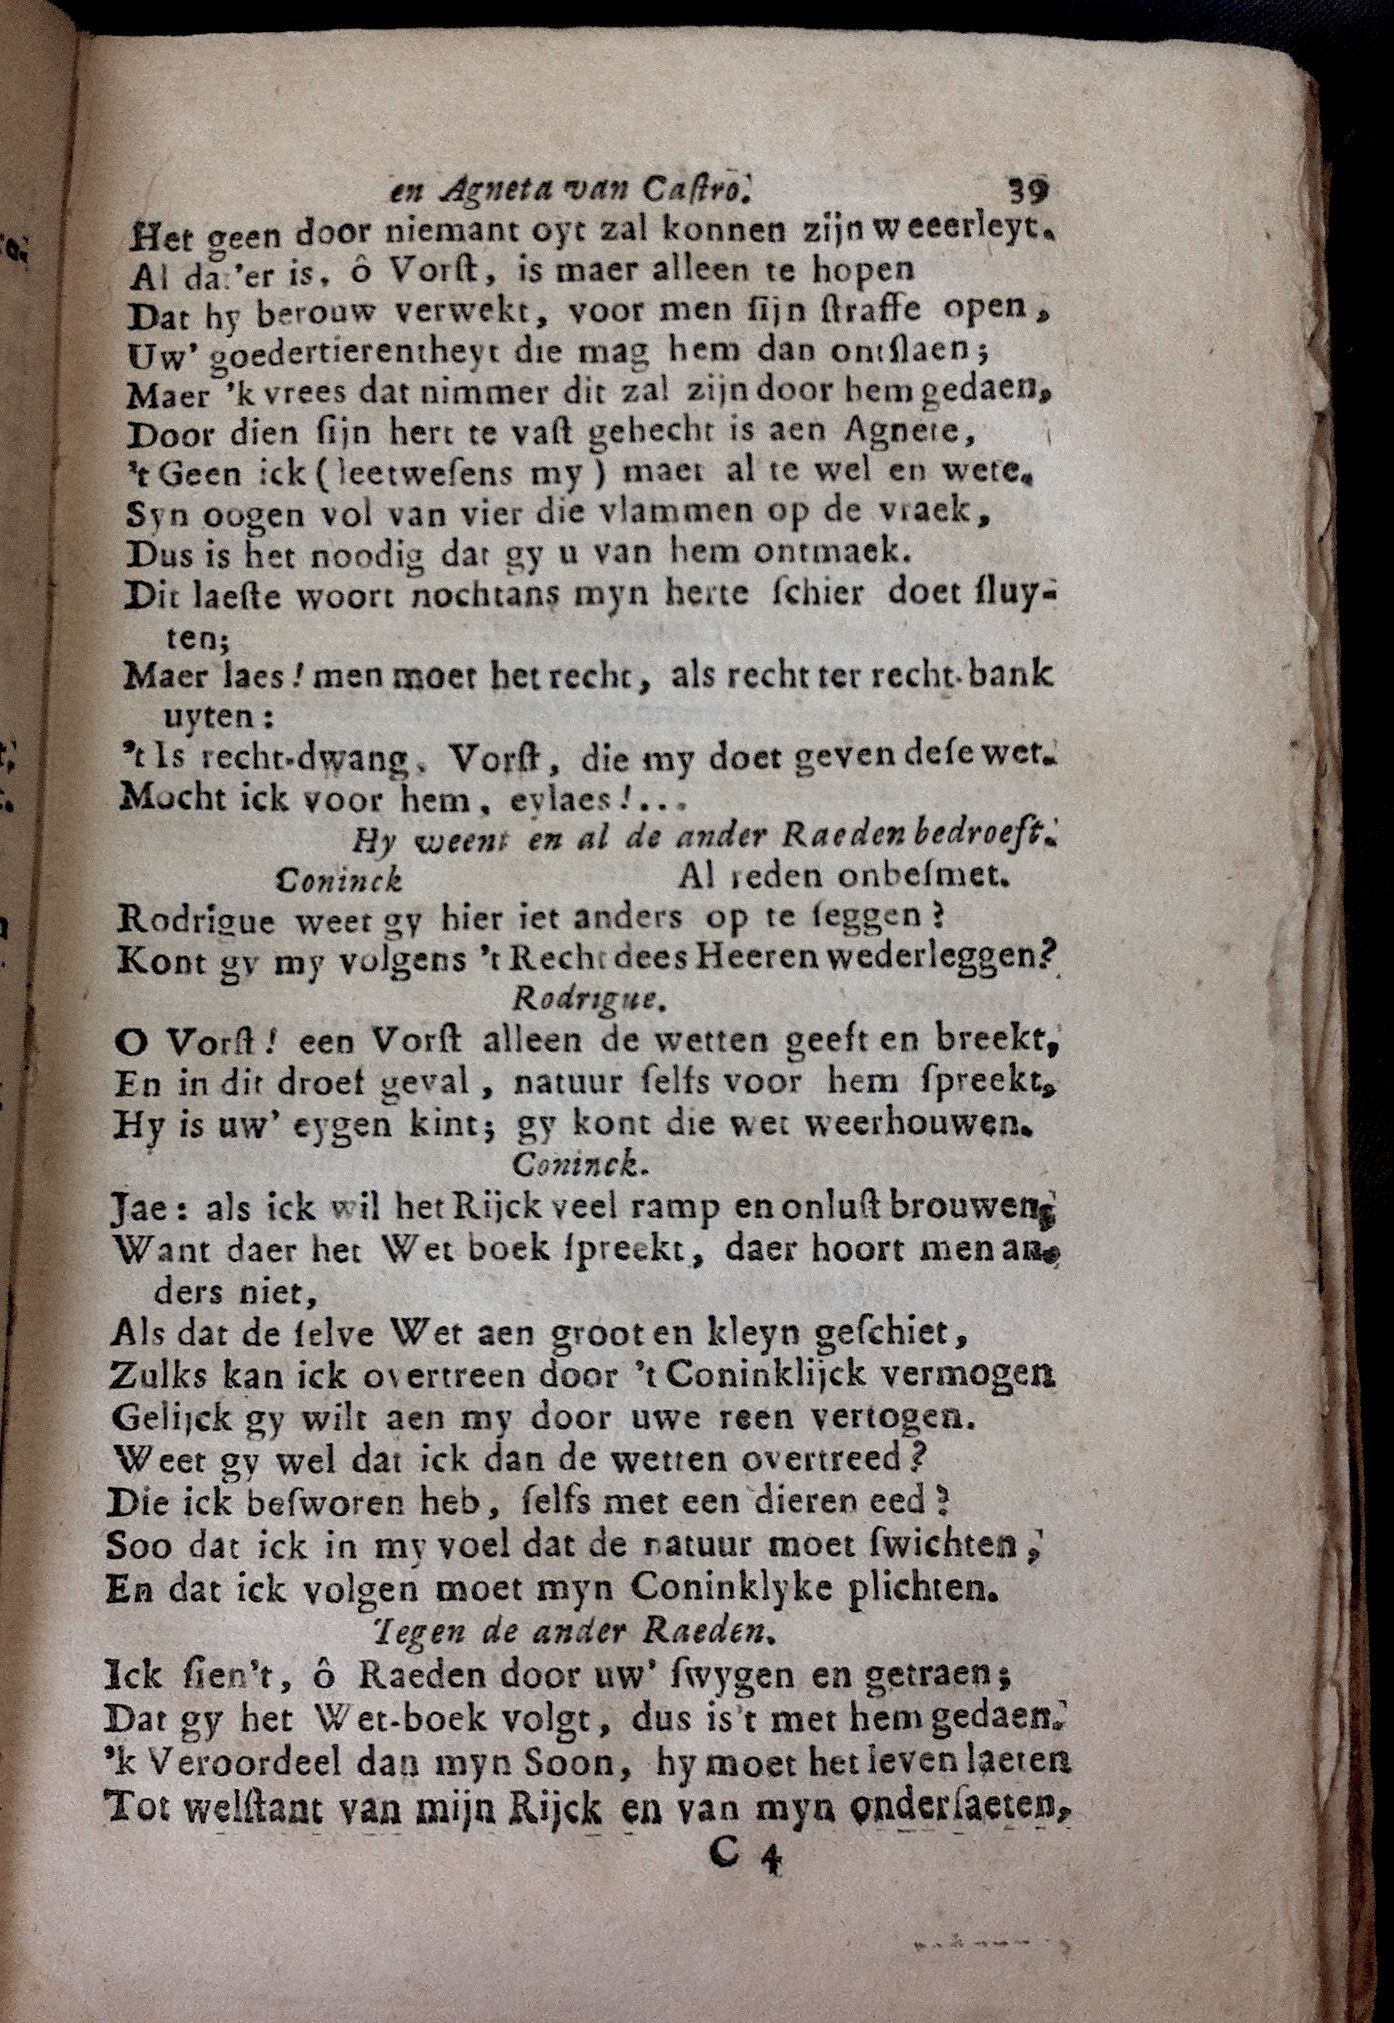 en Agneta van Caſtro. 39
Het geen door niemant oyt zal konnen zijn weeerleyt.
Al dat'er is, ô Vorſt, is maer alleen te hopen
Dat hy berouw verwekt, voor men ſijn ſtraffe open,
Uw' goedertierentheyt die mag hem dan ontſlaen;
Maer 'k vrees dat nimmer dit zal zijn door hem gedaen,
Door dien ſijn hert te vaſt gehecht is aen Agnete,
't Geen ick (leetweſens my) maer al te wel en wete.
Syn oogen vol van vier die vlammen op de vraek,
Dus is het noodig dat gy u van hem ontmaek.
Dit laeſte woort nochtans myn herte ſchier doet ſluy-
ten;
Maer laes! men moet het recht, als recht ter recht-bank
uyten:
't Is recht-dwang, Vorſt, die my doet geven deſe wet.
Mocht ick voor hem, eylaes!...
Hy weent en al de ander Raeden bedroeft.
Coninck Al reden onbeſmet.
Rodrigue weet gy hier iet anders op te ſeggen?
Kont gy my volgens 't Recht dees Heeren wederleggen?
Rodrigue.
O Vorſt! een Vorſt alleen de wetten geeft en breekt,
En in dit droef geval, natuur ſelfs voor hem ſpreekt,
Hy is uw' eygen kint; gy kont die wet weerhouwen.
Coninck.
Jae: als ick wil het Rijck veel ramp en onluſt brouwen;
Want daer het Wet boek ſpreekt, daer hoort men an-
ders niet,
Als dat de ſelve Wet aen groot en kleyn geſchiet,
Zulks kan ick overtreen door 't Coninklijck vermogen
Gelijck gy wilt aen my door uwe reen vertogen.
Weet gy wel dat ick dan de wetten overtreed?
Die ick beſworen heb, ſelfs met een dieren eed?
Soo dat ick in my voel dat de natuur moet ſwichten,
En dat ick volgen moet myn Coninklyke plichten.
Tegen de ander Raeden.
Ick ſien't, ô Raeden door uw' ſwygen en getraen;
Dat gy het Wet-boek volgt, dus is't met hem gedaen.
'k Veroordeel dan myn Soon, hy moet het leven laeten
Tot welſtant van mijn Rijck en van myn onderſaeten,
C 4